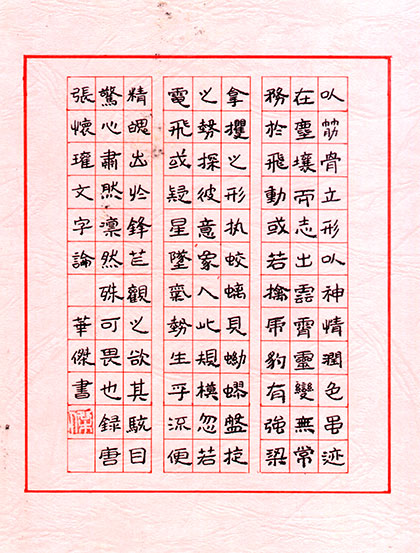 以筋骨立形以神情潤色虽迹
在塵壤而志出雲霄靈變無常
務於飛動或若擒虎豹有強梁
拿攫之形执蛟螭見蚴蟉盤旋
之勢探彼意象入此規模忽若
電飛或疑星墜氣勢生乎流便
精魄出於鋒芒觀之欲其駭目
驚心肅然凜然殊可畏也錄唐
張懷瓘文字論 華傑書